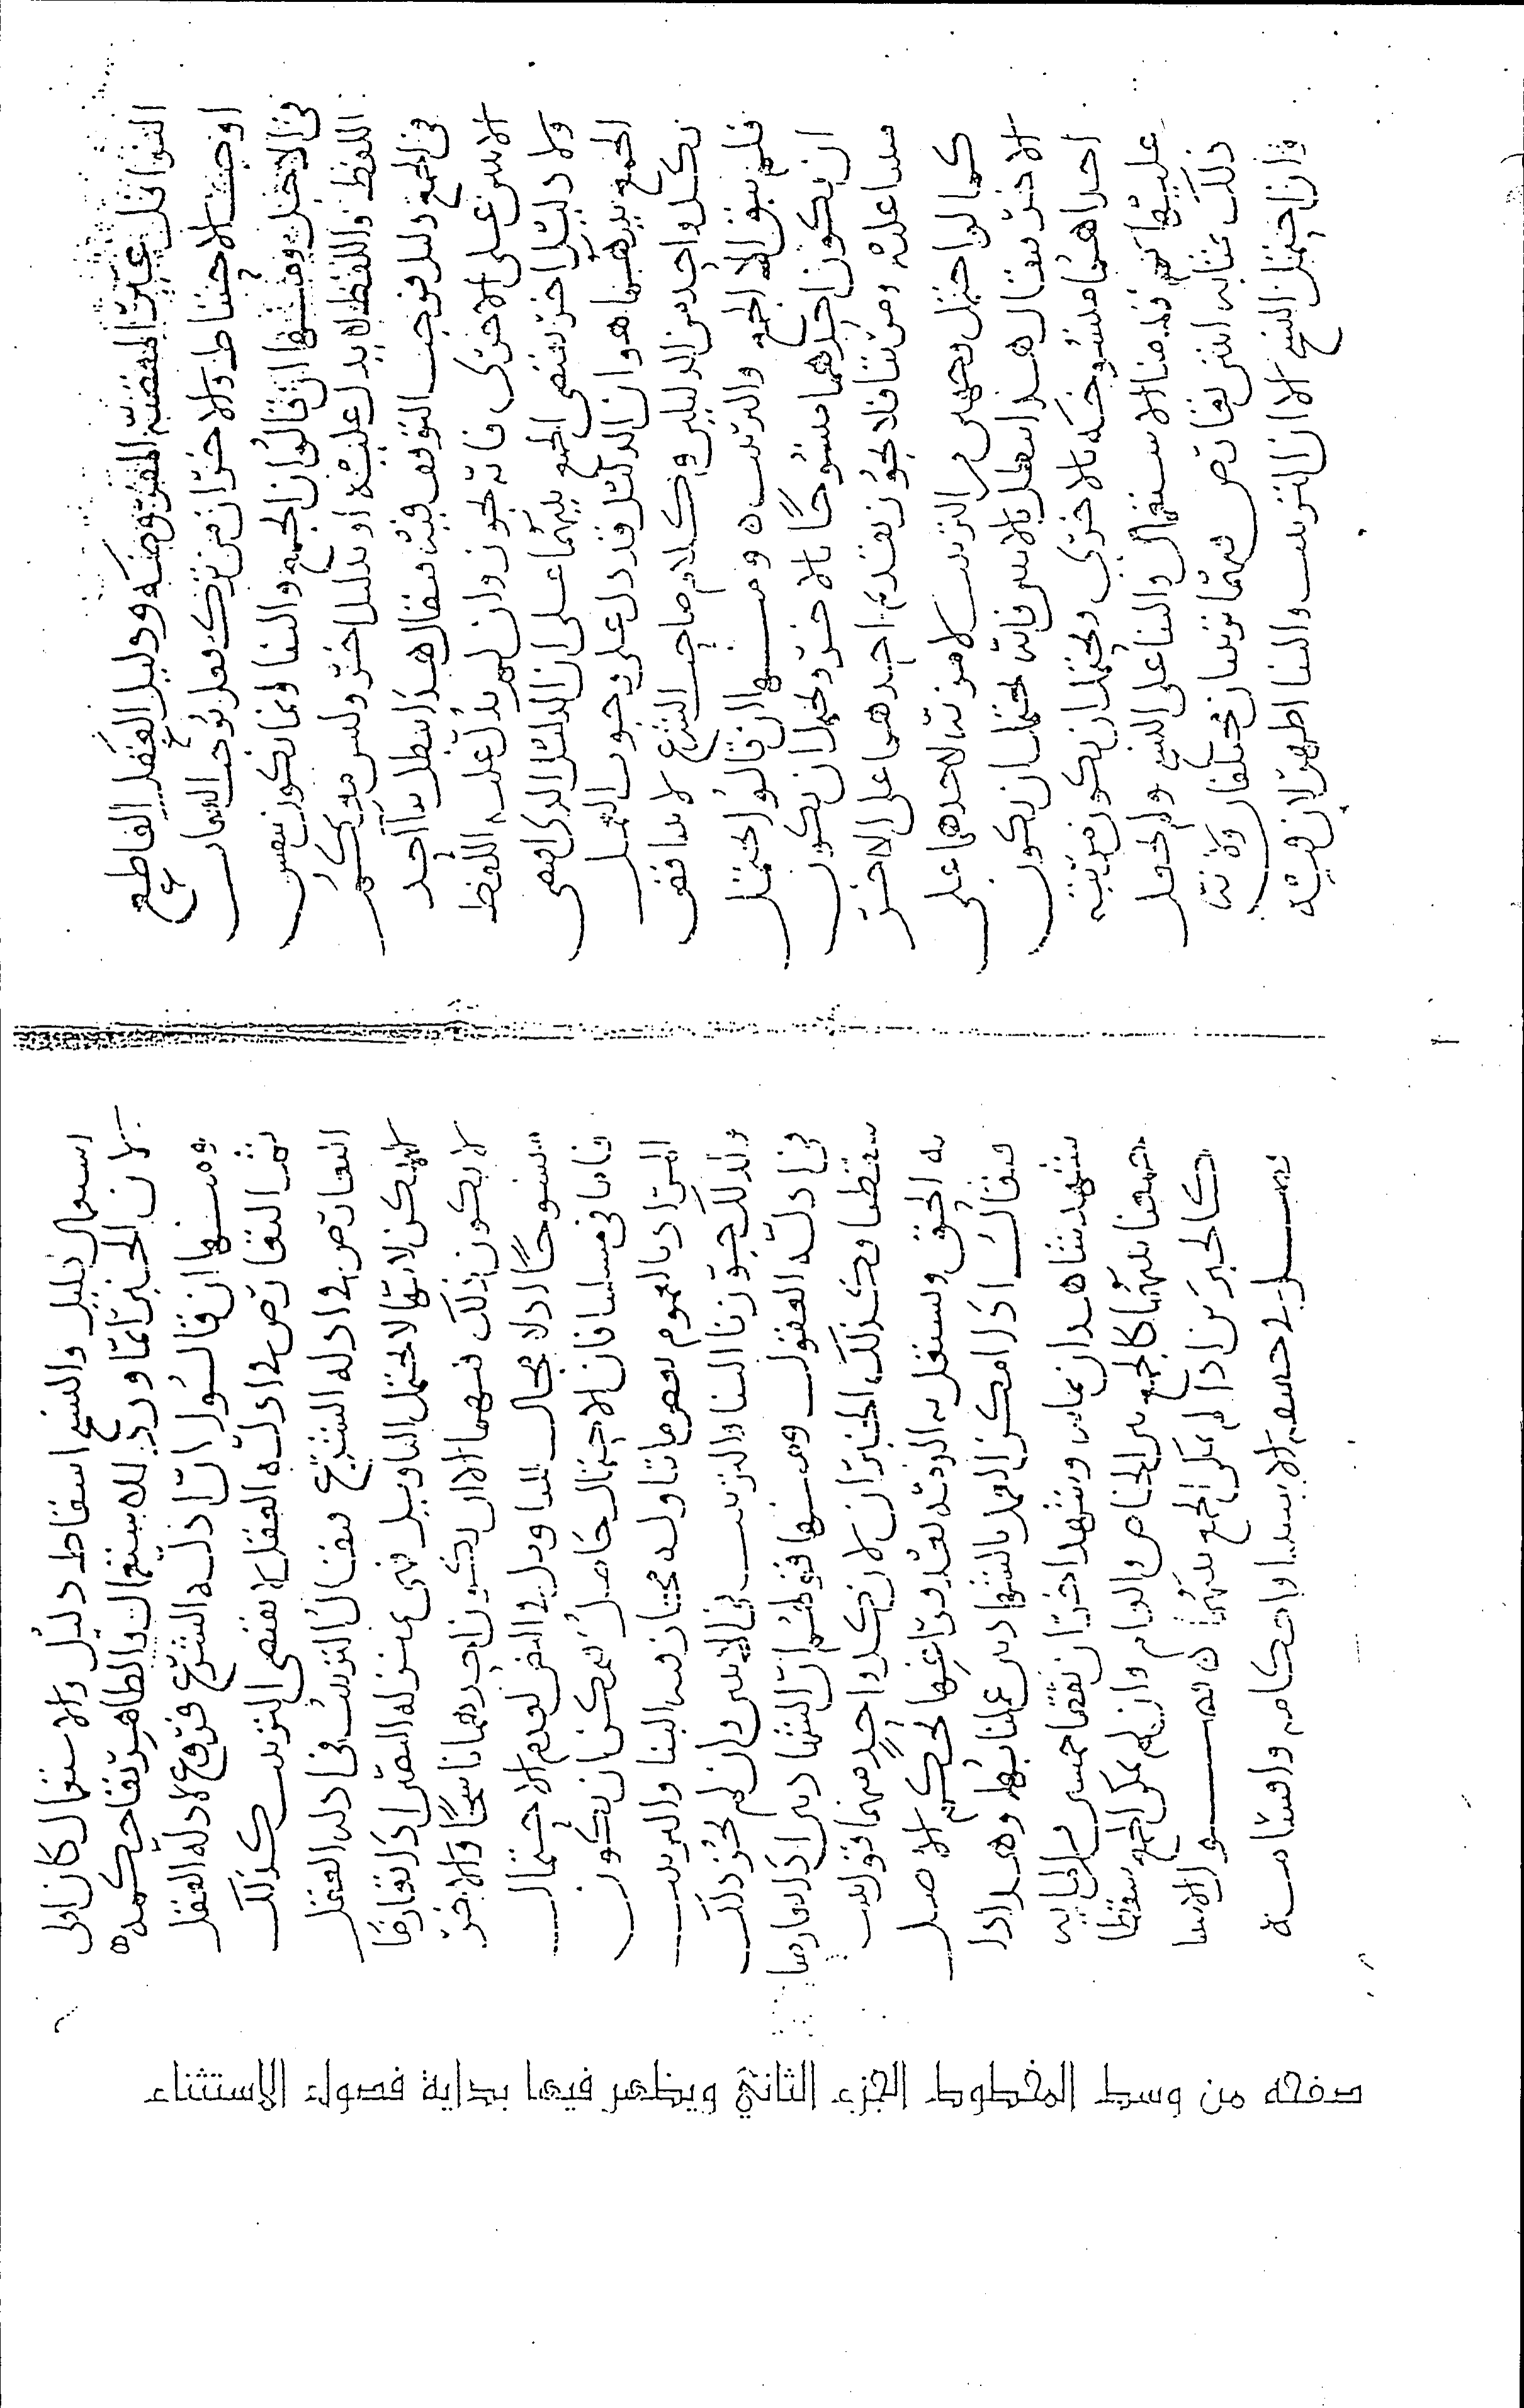 النوافل عبرة المقضية المفرق منه ودليل العقل القاطع
اوجب الاحتياط والاخر ان من ترك فعل
في الاخذ ومنها ان قالوا ان الجمع والبنا انما يكون نفس
اللفظ واللفظ لا يدل عليه او بدليل اخر وليس معكم
في الجمع دليل فوجب التوقف فيه فيقال هذا يبطل بما احد
الاثنين على الاخرى فانه يجوز وان لم يدل عليه اللفظ
ولا دليل اخر يقتضي الجمع بينهما على ان الدليل الذي اقتضى
الجمع بينهما هو ان الدليل قد دل على وجوب العمل
بكل واحد من الدليلين وكلام صاحب الشرع لا يتناقض
فلم يبق الا الجمع والترتيب ومنها ان قالوا يحتمل
ان يكون احدهما منسوخا بالاخر ويحتمل ان يكون
مبنيا عليه ومرتبا فلا يجوز تقديم احدهما على الاخر
كما لو احتمل وجهين من الترتيب لا مزية لاحدهما على
الاخر فيقال هذا يبطل بالاثنين فانه يحتمل ان يكون
احداهما منسوخه بالاخرى ويحتمل ان يكون مرتبة
عليها ثم قدمنا الاستعمال والبنا على النسخ ولم يجعل
ذلك بمثابه اثنين تعارض فيهما ترتيبان مختلفان ولانه
وان احتمل النسخ الا ان الترتيب والبنا اظهر لان فيه
استعمال دليل والنسخ اسقاط دليل والاستعمال كان اولى
لان الخبر انما ورد للاستعمال والظاهر بقا حكمه
ومنها ان قالوا ان ادلة الشرع فروع لادلة العقل
ثم التعارض في ادلة العقل لا يقتضي الترتيب كذلك
التعارض في ادلة الشرع فيقال الترتيب في ادلة العقل
لا يمكن لانها لا تحتمل التاويل فهي بمنزلة النصين اذا تعارضا
لا يكون ذلك فيهما الا ان يكون احدهما ناسخا والاخر
منسوخا اذ لا مجال للتاويل في النص لعدم الاحتمال
فاما في مسلتنا فان الاحتمال حاصل يمكن ان يكون
المراد بالعموم بعض ما تناوله فجاز فيه البنا والترتيب
ولذلك جوزنا البنا والترتيب في الاثنين وان لم يجز ذلك
في ادلة العقول ومنها قولهم ان الشهادتين اذا تعارضتا
سقطتا وكذلك الخبران لان كل واحد منهما قول يثبت
به الحق ويستقل به الذمة بعد فراغها بحكم الاصل
فيقال اذا امكن العمل بالشهادتين عملنا بهما وهذا اذا
شهد شاهدان بمايه وشهد اخران بقضا خمسين من المايه
جمعنا بينهما كالجمع بين الخاص والعام وان لم يمكن الجمع سقطا
كالخبرين اذا لم يمكن الجمع بينهما فصول الاستثنا
فصل في حقيقة الاستثنا واحكامه واقسامه
صفحه من وسط المخطوط الجزء الثاني ويظهر فيها بداية فصول الإستثناء